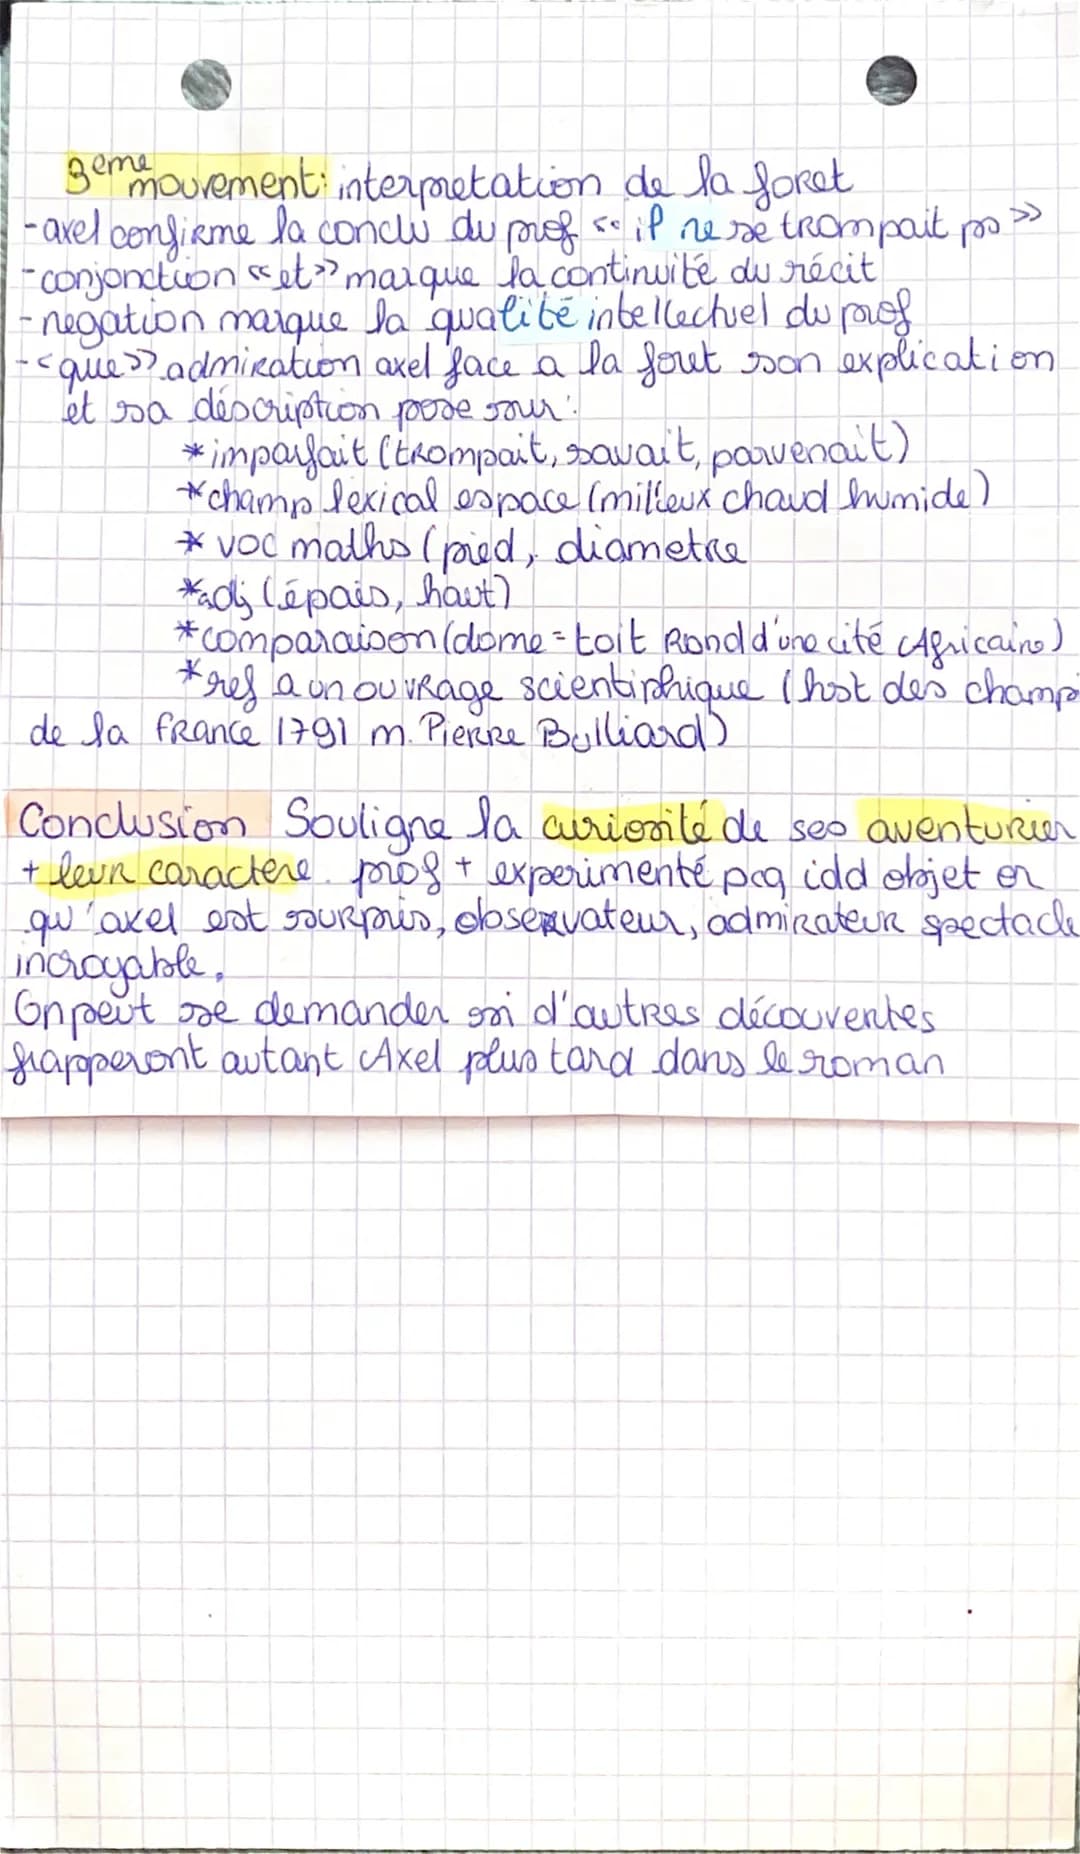 3eme mouvement: interpretation de la foret
-axel confirme la conclu du prof << il ne se trompait pas >>
-conjonction <<et>> marque la continuité du récit
-negation marque la qualité intellectuel du prof
-<que>> admiration axel face a la foret son explication
et sa déscription pose sour:
*imparfait (trompait, savait, parvenait)
*champ lexical espace (milieux chaud humide)
* voc maths (pied, diametre
*adj (épais, haut)
*comparaison (dome = toit Rond d'une cité Africaine)
*ref a un ouvrage scientiphique (hist des champi
de la france 1791 m. Pierre Bulliard)
Conclusion Souligne la curiosité de ses aventurier
+ leur caractere. prof + experimenté pcq idd objet er
qu'axel est sourpris, observateur, admirateur spectacle
incroyable.
On peut se demander si d'autres découvertes
frapperont autant Axel plus tard dans le roman